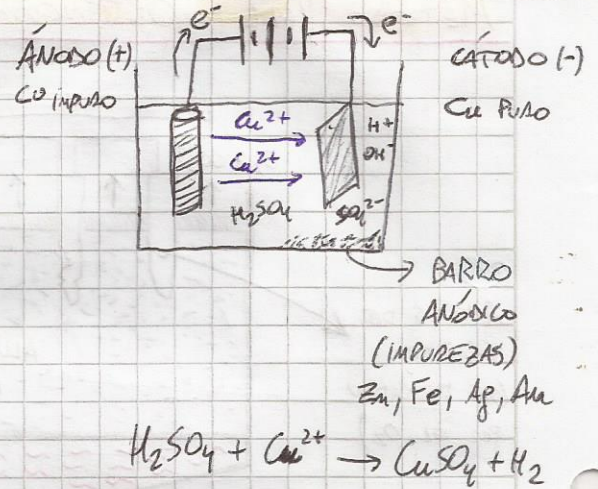 e⁻ e⁻
ÁNODO (+)
Cu IMPURO
CÁTODO (-)
Cu PURO
Cu²⁺
Cu²⁺
H₂SO₄
H⁺
OH⁻
SO₄²⁻
BARRO
ANÓDICO
(IMPUREZAS)
Zn, Fe, Ag, Au
H₂SO₄ + Cu²⁺ → CuSO₄ + H₂